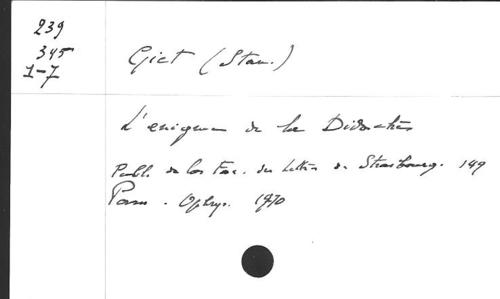 239
345
1-7
Giet (Stan.)
L'enigme de la Didachès
Publ. de la Fac. des Lettres de Strasbourg. 149
Paris. Ophrys. 1970